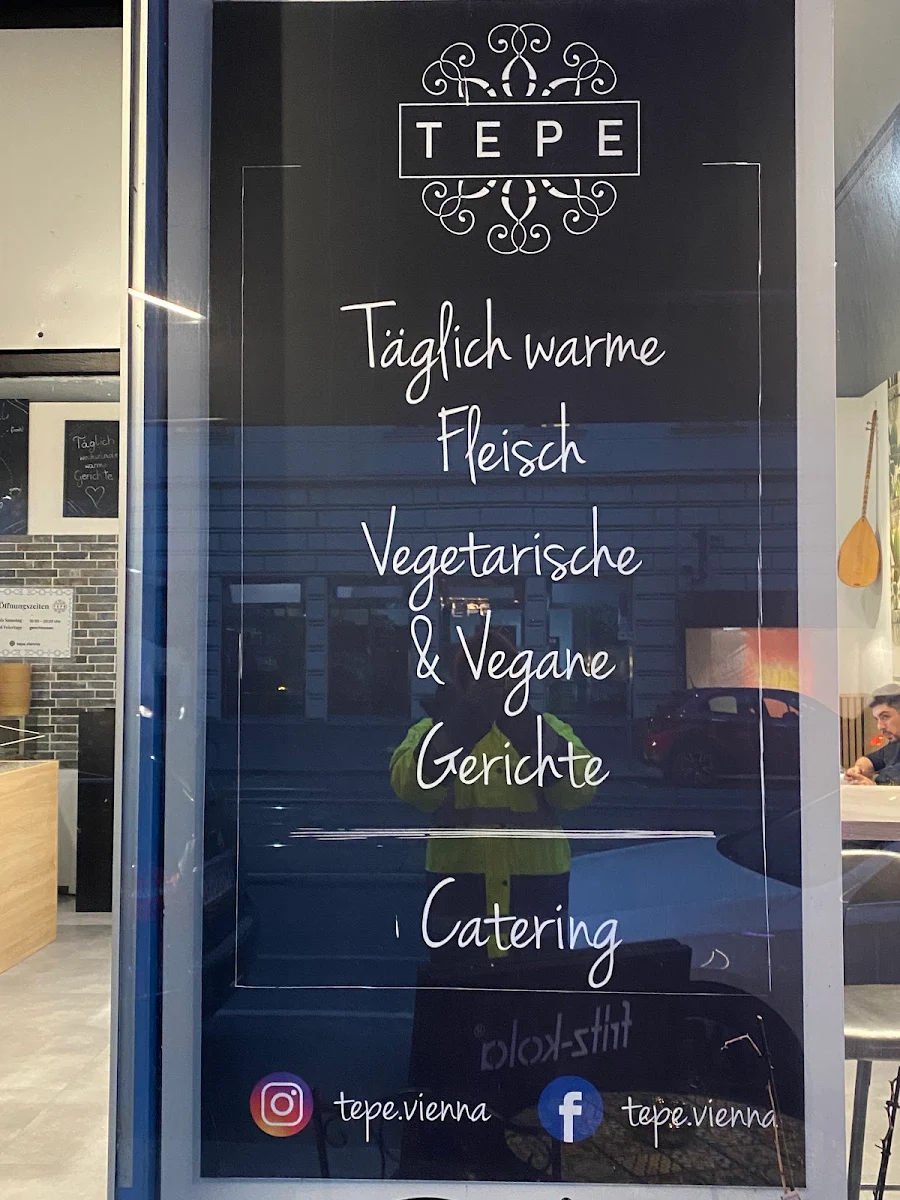 TEPE
Täglich warme
Fleisch
Vegetarische
& Vegane
Gerichte
Catering
fritz-kola
tepe.vienna
tepe.vienna
Täglich
warme
Gerichte
Öffnungszeiten
tepe.vienna